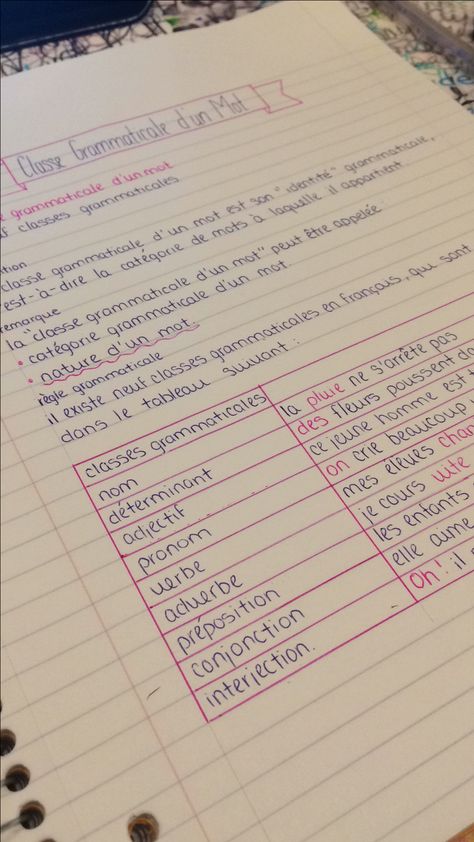 Classe Grammaticale d'un Mot
grammaticale d'un mot
classes grammaticales
classe grammaticale d'un mot est son "identité" grammaticale,
est-à-dire la catégorie de mots à laquelle il appartient
remarque
la "classe grammaticale d'un mot" peut être appelée :
• catégorie grammaticale d'un mot.
• nature d'un mot.
règle grammaticale
il existe neuf classes grammaticales en français, qui sont
dans le tableau suivant :
classes grammaticales
nom la pluie ne s'arrête pas
déterminant des fleurs poussent
adjectif ce jeune homme est
pronom on crie beaucoup
verbe mes élèves
adverbe je cours vite
préposition les enfants
conjonction elle aime
interjection. Oh! il